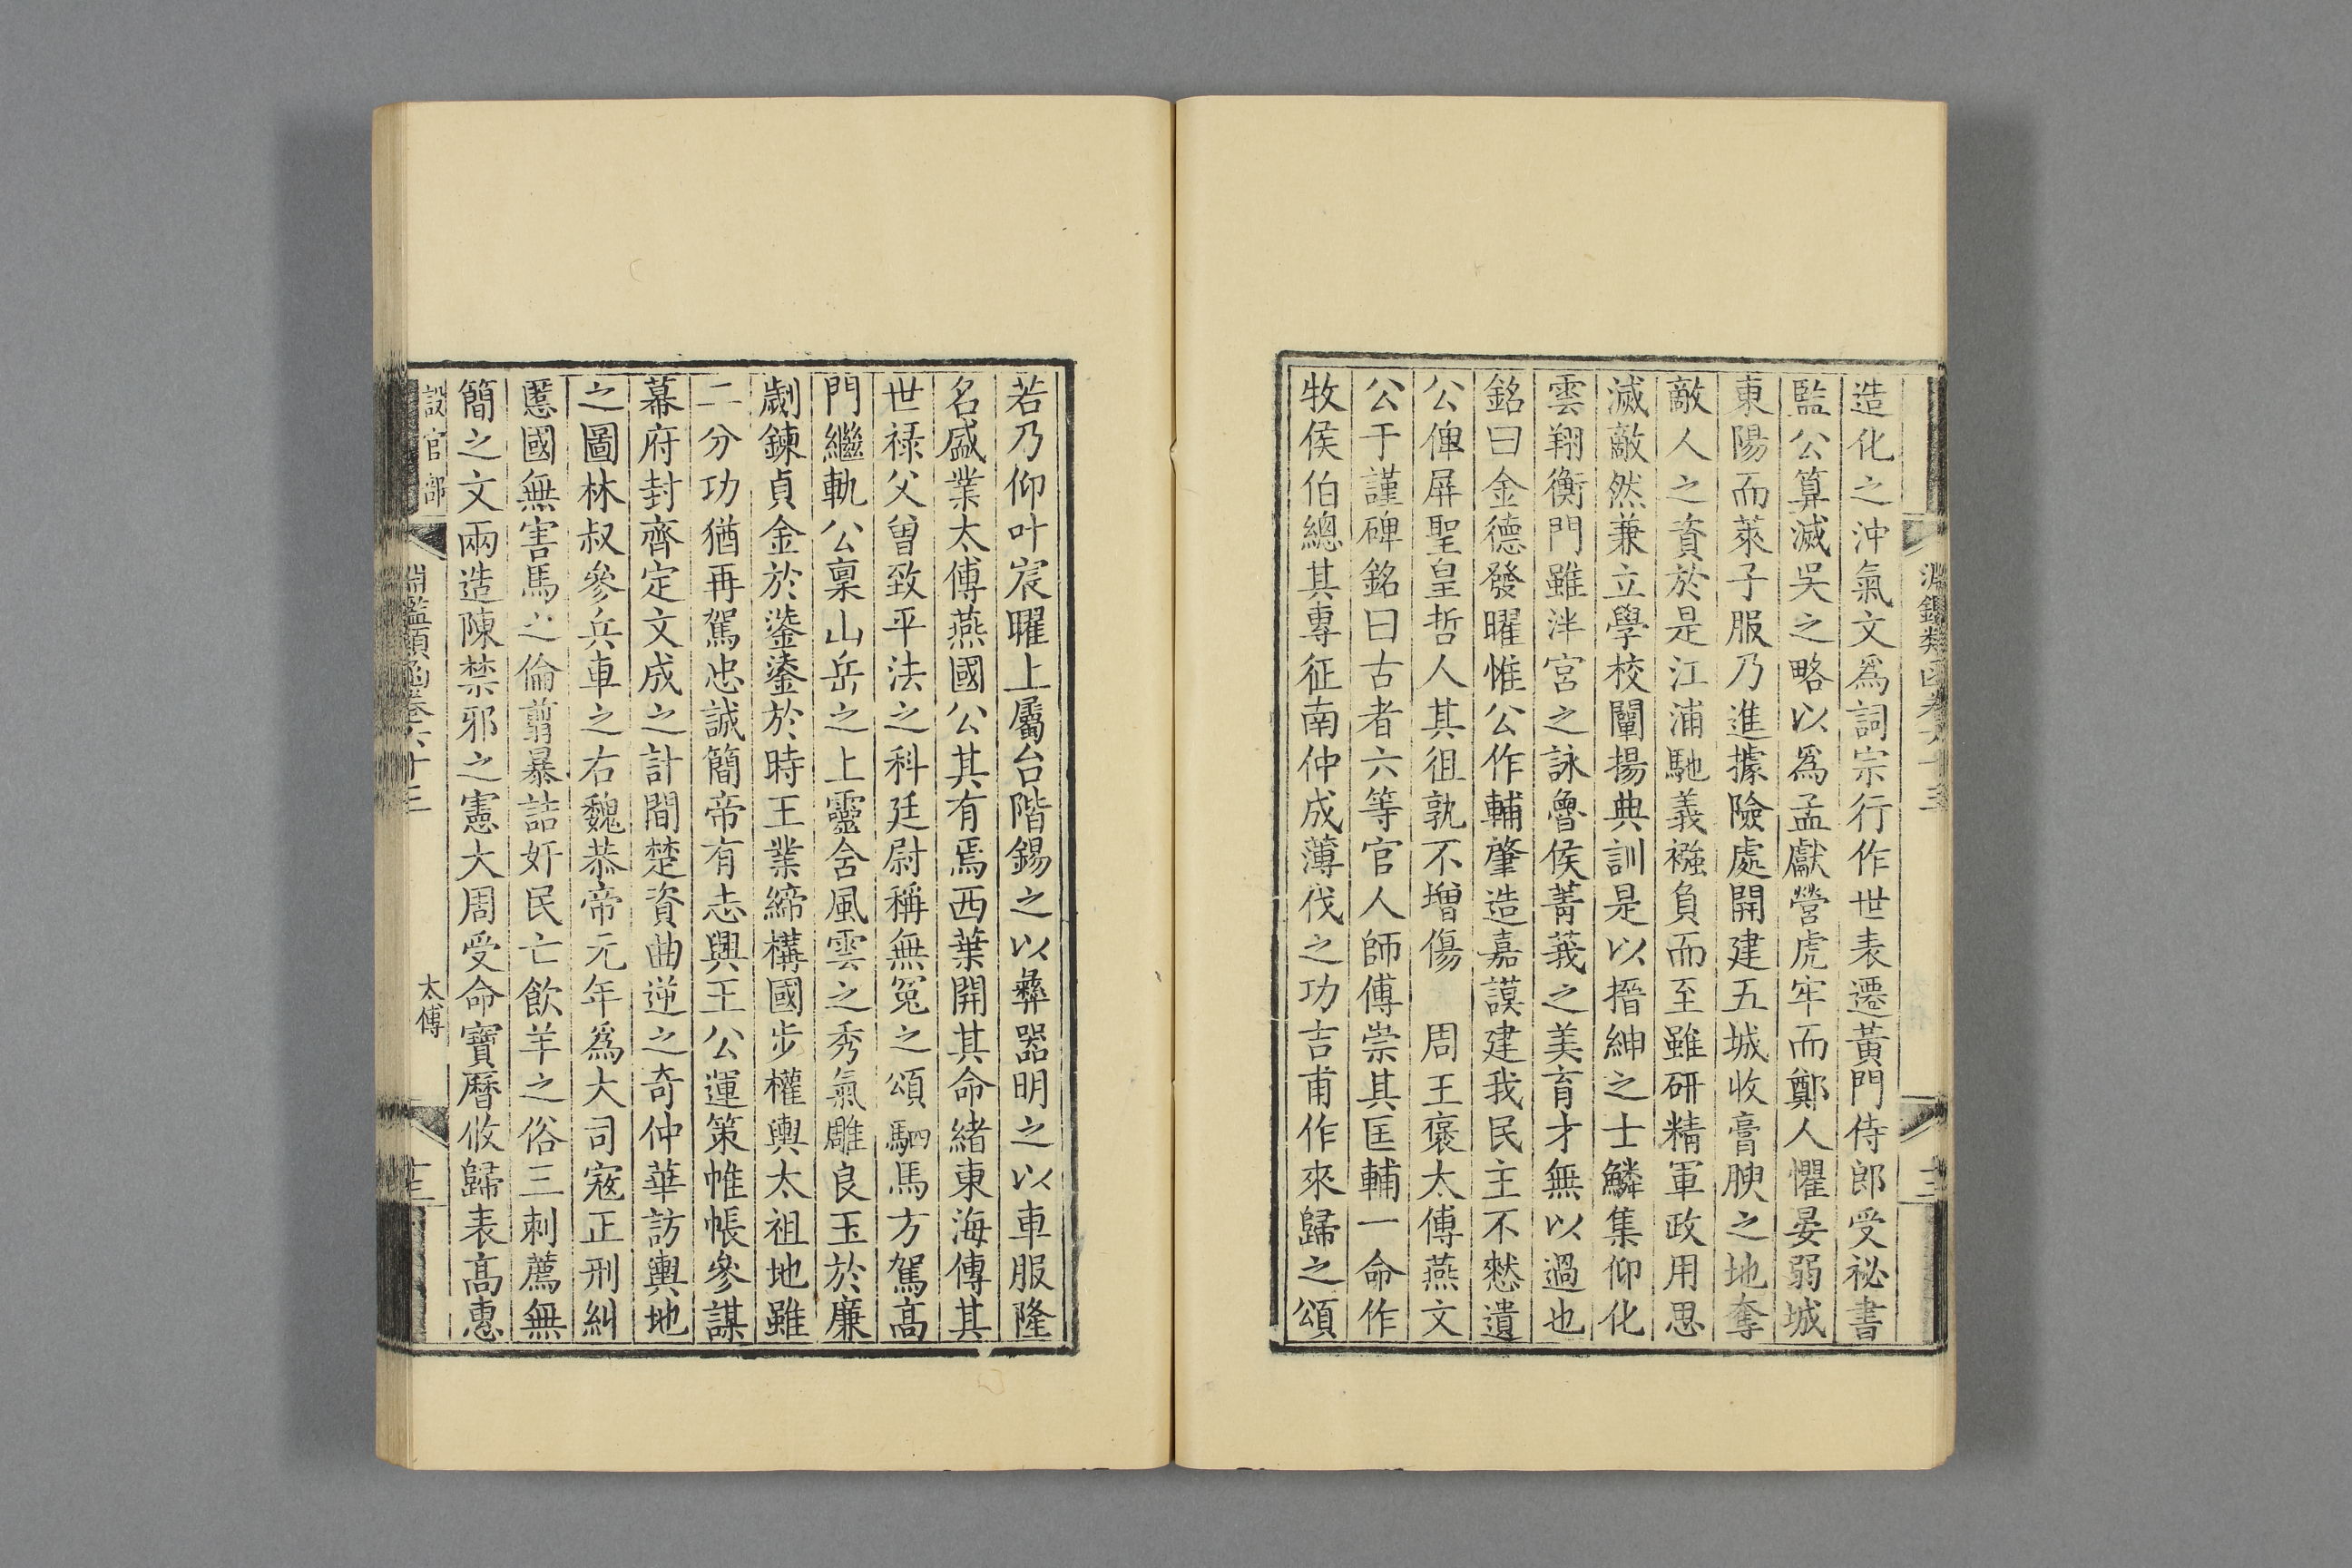 造化之沖氣文爲詞宗行作世表遷黃門侍郎受祕書
監公算滅吳之略以爲孟獻營虎牢而鄭人懼晏弱城
東陽而萊子服乃進據險處開建五城收膏腴之地奪
敵人之資於是江浦馳義襁負而至雖研精軍政用思
滅敵然兼立學校闡揚典訓是以搢紳之士鱗集仰化
雲翔衡門雖泮宮之詠魯侯菁莪之美育才無以過也
銘曰金德發曜惟公作輔肇造嘉謨建我民主不憖遺
公俾屏聖皇哲人其徂孰不增傷　周王褒太傅燕文
公于謹碑銘曰古者六等官人師傅崇其匡輔一命作
牧侯伯總其專征南仲成薄伐之功吉甫作來歸之頌
若乃仰叶宸曜上屬台階錫之以彝器明之以車服隆
名盛業太傅燕國公其有焉西葉開其命緒東海傳其
世祿父曾致平法之科廷尉稱無冤之頌駟馬方駕高
門繼軌公稟山岳之上靈含風雲之秀氣雕良玉於廉
劌鍊貞金於鋈鎏於時王業締構國步權輿太祖地雖
二分功猶再駕忠誠簡帝有志興王公運策帷帳參謀
幕府封齊定文成之計間楚資曲逆之奇仲華訪輿地
之圖林叔參兵車之右魏恭帝元年爲大司寇正刑糾
慝國無害馬之倫翦暴詰奸民亡飲羊之俗三刺薦無
簡之文兩造陳禁邪之憲大周受命寶曆攸歸表高惠
設官部
淵鑑類函卷六十三
太傅
十三